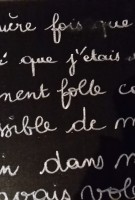 ière fois que
é que j'étais
ment folle co
ssible de m
in dans m
avais vol